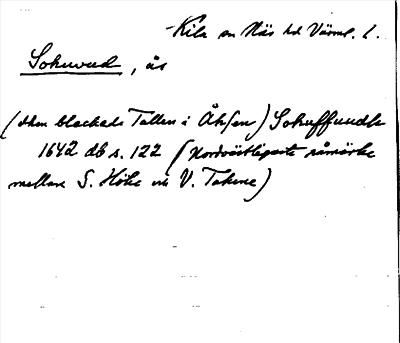 Kila sn Näs hd Värml. l.
Sohuvud, ås
(then bleckade Tallen i Åhsen) Sohuffuudh
1642 db s. 122 (Nordvästligaste råmärke
mellan S. Höke och V. Takene)